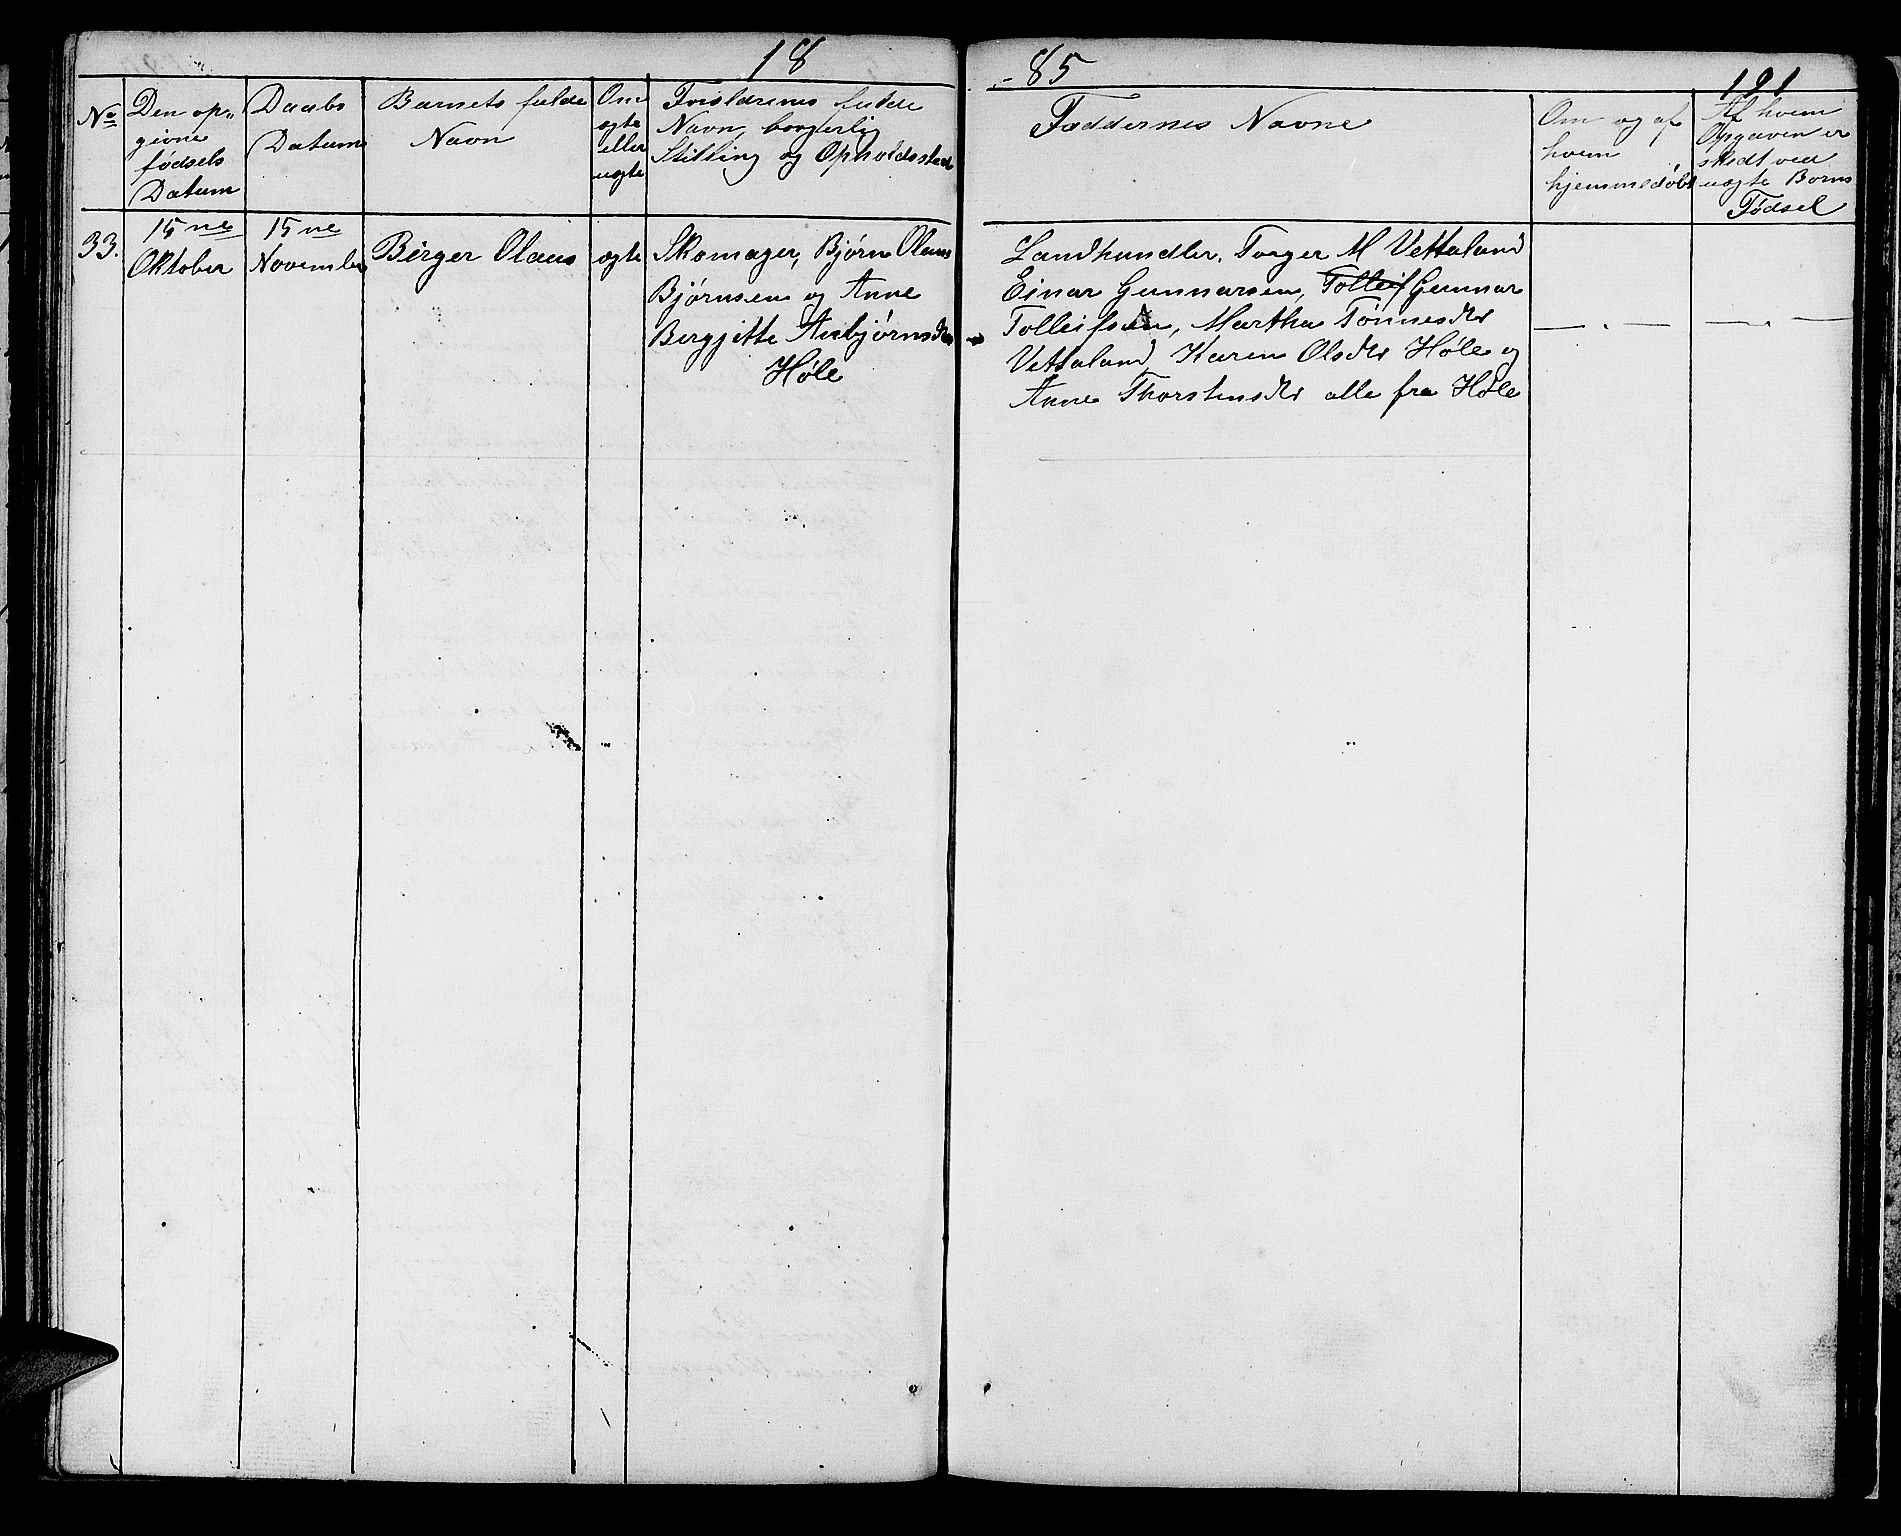 18
-85
191
No
Den op-
givne
fødsels
Datum
Daabs
Datum
Barnets fulde
Navn
Om
ægte
eller
uægte
Forældrenes fulde
Navn, borgerlig
Stilling og Opholdssted
Faddernes Navne
Om og af
hvem
hjemmedøbt
Af hvem
Opgaven er
skedt ved
uægte Børns
Fødsel
33.
15ne
Oktober
15ne
November
Birger Olaus
ægte
Skomager, Bjørn Olaus
Bjørnsen og Anne
Bergjitte Asbjørnsdtr
Høle
Landhandler, Torger M Vettaland
Einar Gunnarsen, Tolleif Gunnar
Tolleifsen, Martha Tønnesdtr
Vettaland, Karen Olsdtr Høle og
Anne Thorstensdtr alle fra Høle
— . —
— . —